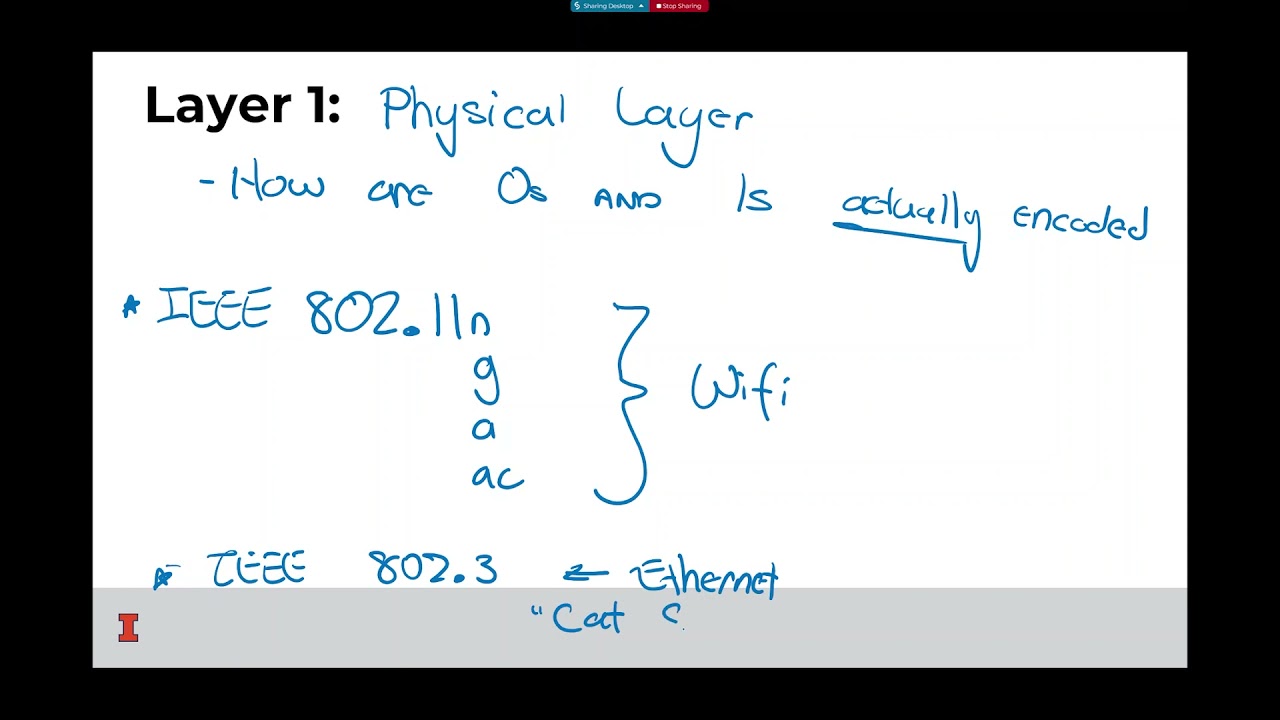 Sharing Desktop Stop Sharing
Layer 1: Physical Layer
- How are 0s AND 1s actually encoded
* IEEE 802.11n
g
a
ac
} Wifi
* IEEE 802.3 ← Ethernet
"Cat
I